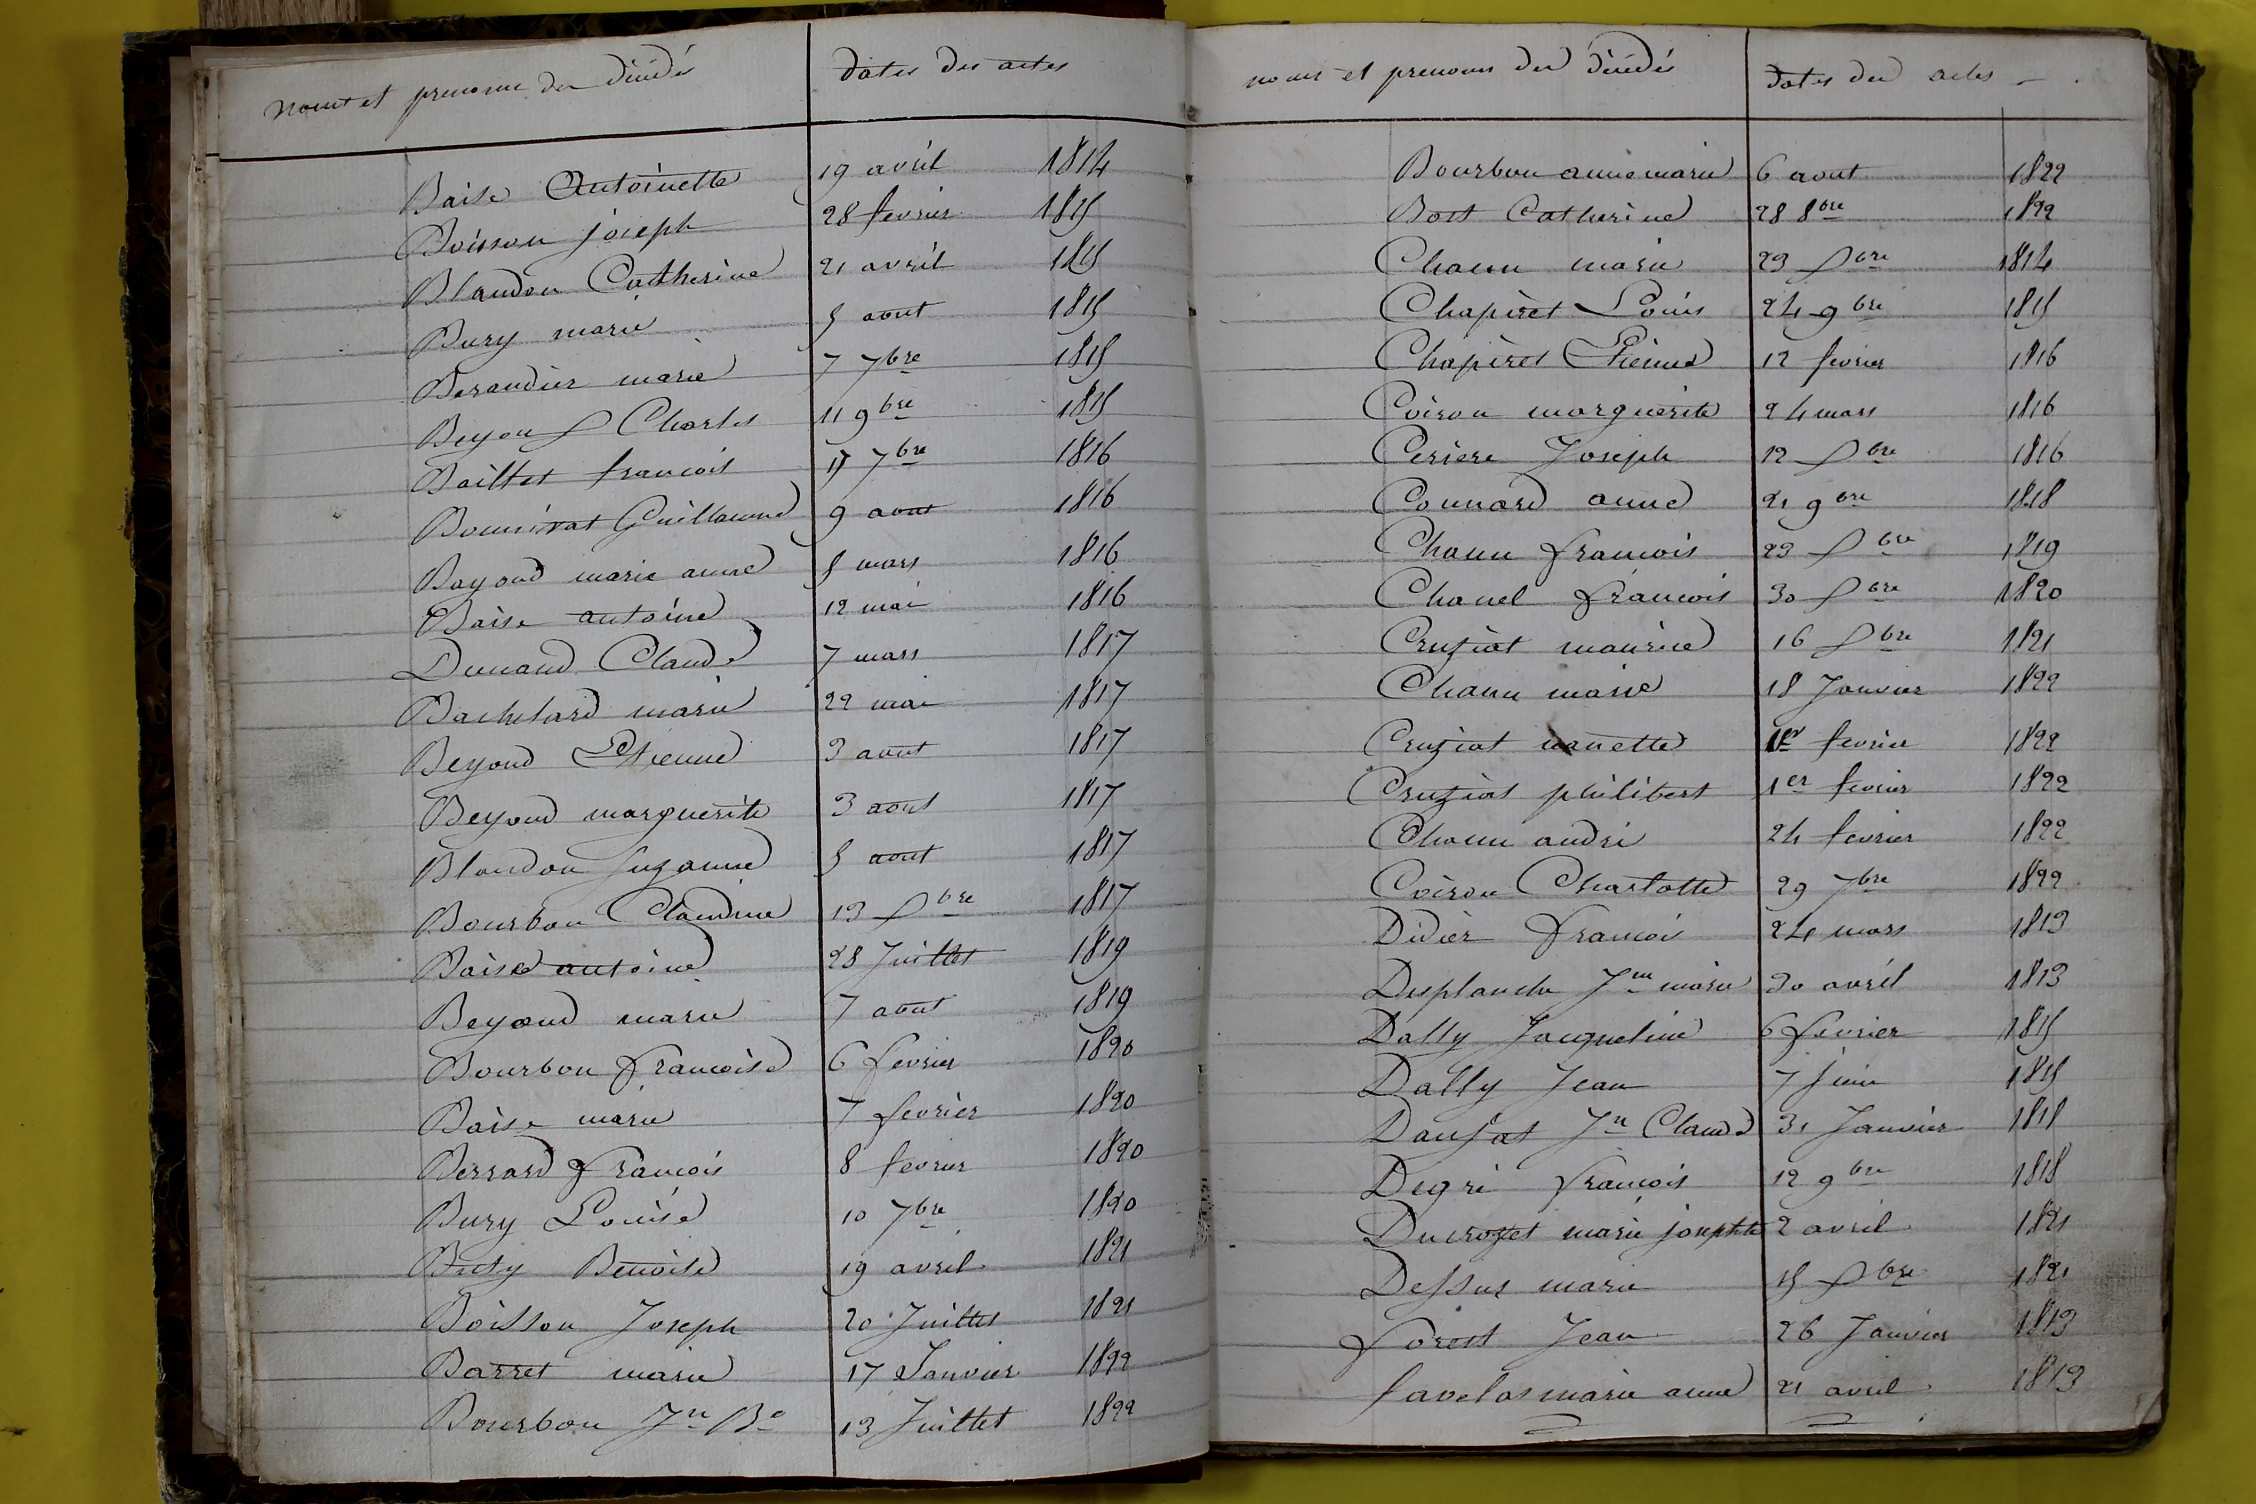 noms et prenoms des décédés dates des actes
Baise Antoinette 19 avril 1814
Boisson joseph 28 fevrier 1815
Blandon Catherine 21 avril 1815
Bury marie 5 aout 1815
Beraudier marie 7 7bre 1815
Beyou Charles 11 9bre 1815
Baillet francois 17 7bre 1816
Guillaume 9 aout 1816
Bayoud marie anne 5 mars 1816
Baise antoine 12 mai 1816
Dunand Claude 7 mars 1817
Bachelard marie 22 mai 1817
Beyoud Etienne 3 aout 1817
Beyoud marguerite 3 aout 1817
Blandon Suzanne 5 aout 1817
Bourbon Claudine 13 Xbre 1817
Baise antoine 28 Juillet 1819
Beyoud marie 7 aout 1819
Bourbon francoise 6 fevrier 1820
Baise marie 7 fevrier 1820
Berrard francois 8 fevrier 1820
Bury Louise 10 7bre 1820
Benoite 19 avril 1821
Boisson Joseph 20 Juillet 1821
Barret marie 17 Janvier 1822
Bourbon Jn Bte 13 Juillet 1822
noms et prenoms des décédés dates des actes
Bourbon anne marie 6 aout 1822
Bost Catherine 28 8bre 1822
Chanu marie 23 Xbre 1814
Chapiret Louis 24 9bre 1815
Chapiret Etienne 12 fevrier 1816
Coiron marguerite 24 mars 1816
Ceriere Joseph 12 Xbre 1816
Connard anne 21 9bre 1818
Chanu francois 23 Xbre 1819
Chanel francois 30 Xbre 1820
Cruziat maurice 16 Xbre 1821
Chanu marie 18 Janvier 1822
Cruziat nanette 1er fevrier 1822
Cruziat philibert 1er fevrier 1822
Chanu andré 24 fevrier 1822
Coiron Charlotte 29 7bre 1822
Didier francois 24 mars 1813
Desplanche Jne marie 30 avril 1813
Dally Jacqueline 6 fevrier 1815
Dally Jean 7 juin 1815
Danjat Jn Claude 31 Janvier 1818
Degré francois 12 9bre 1818
Ducrozet marie josephte 2 avril 1821
Dessus marie 15 Xbre 1821
forest Jean 26 Janvier 1813
favelas marie anne 21 avril 1813